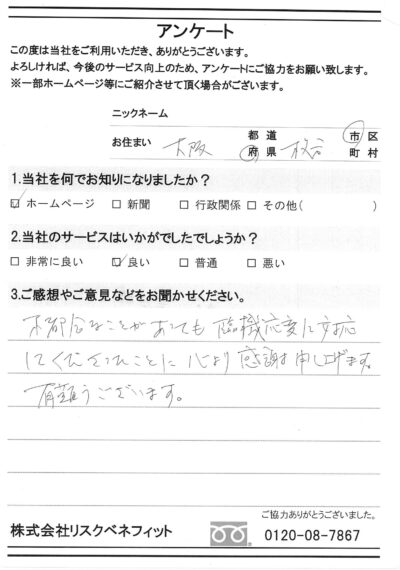 アンケート
この度は当社をご利用いただき、ありがとうございます。
よろしければ、今後のサービス向上のため、アンケートにご協力をお願い致します。
※一部ホームページ等にご紹介させて頂く場合がございます。
ニックネーム
お住まい 大阪 都 道 府 県 枚方 市 区 町 村
1.当社を何でお知りになりましたか？
☑ ホームページ □ 新聞 □ 行政関係 □ その他( )
2.当社のサービスはいかがでしたでしょうか？
□ 非常に良い ☑ 良い □ 普通 □ 悪い
3.ご感想やご意見などをお聞かせください。
不都合なことがあっても臨機応変に対応
してくださったことに心より感謝申し上げます。
有難うございます。
ご協力ありがとうございました。
株式会社リスクベネフィット 0120-08-7867